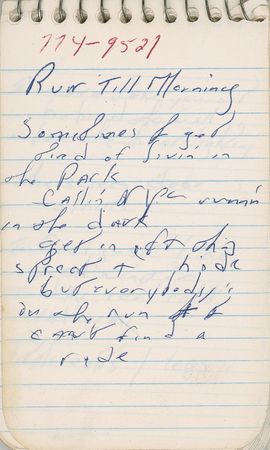 774-9521
Run Till Morning
Sometimes I get
tired of livin in
the Park
Callin runnin
in the dark
get in off the
street + hide
but everybody's
on the run & I
cant find a
ride